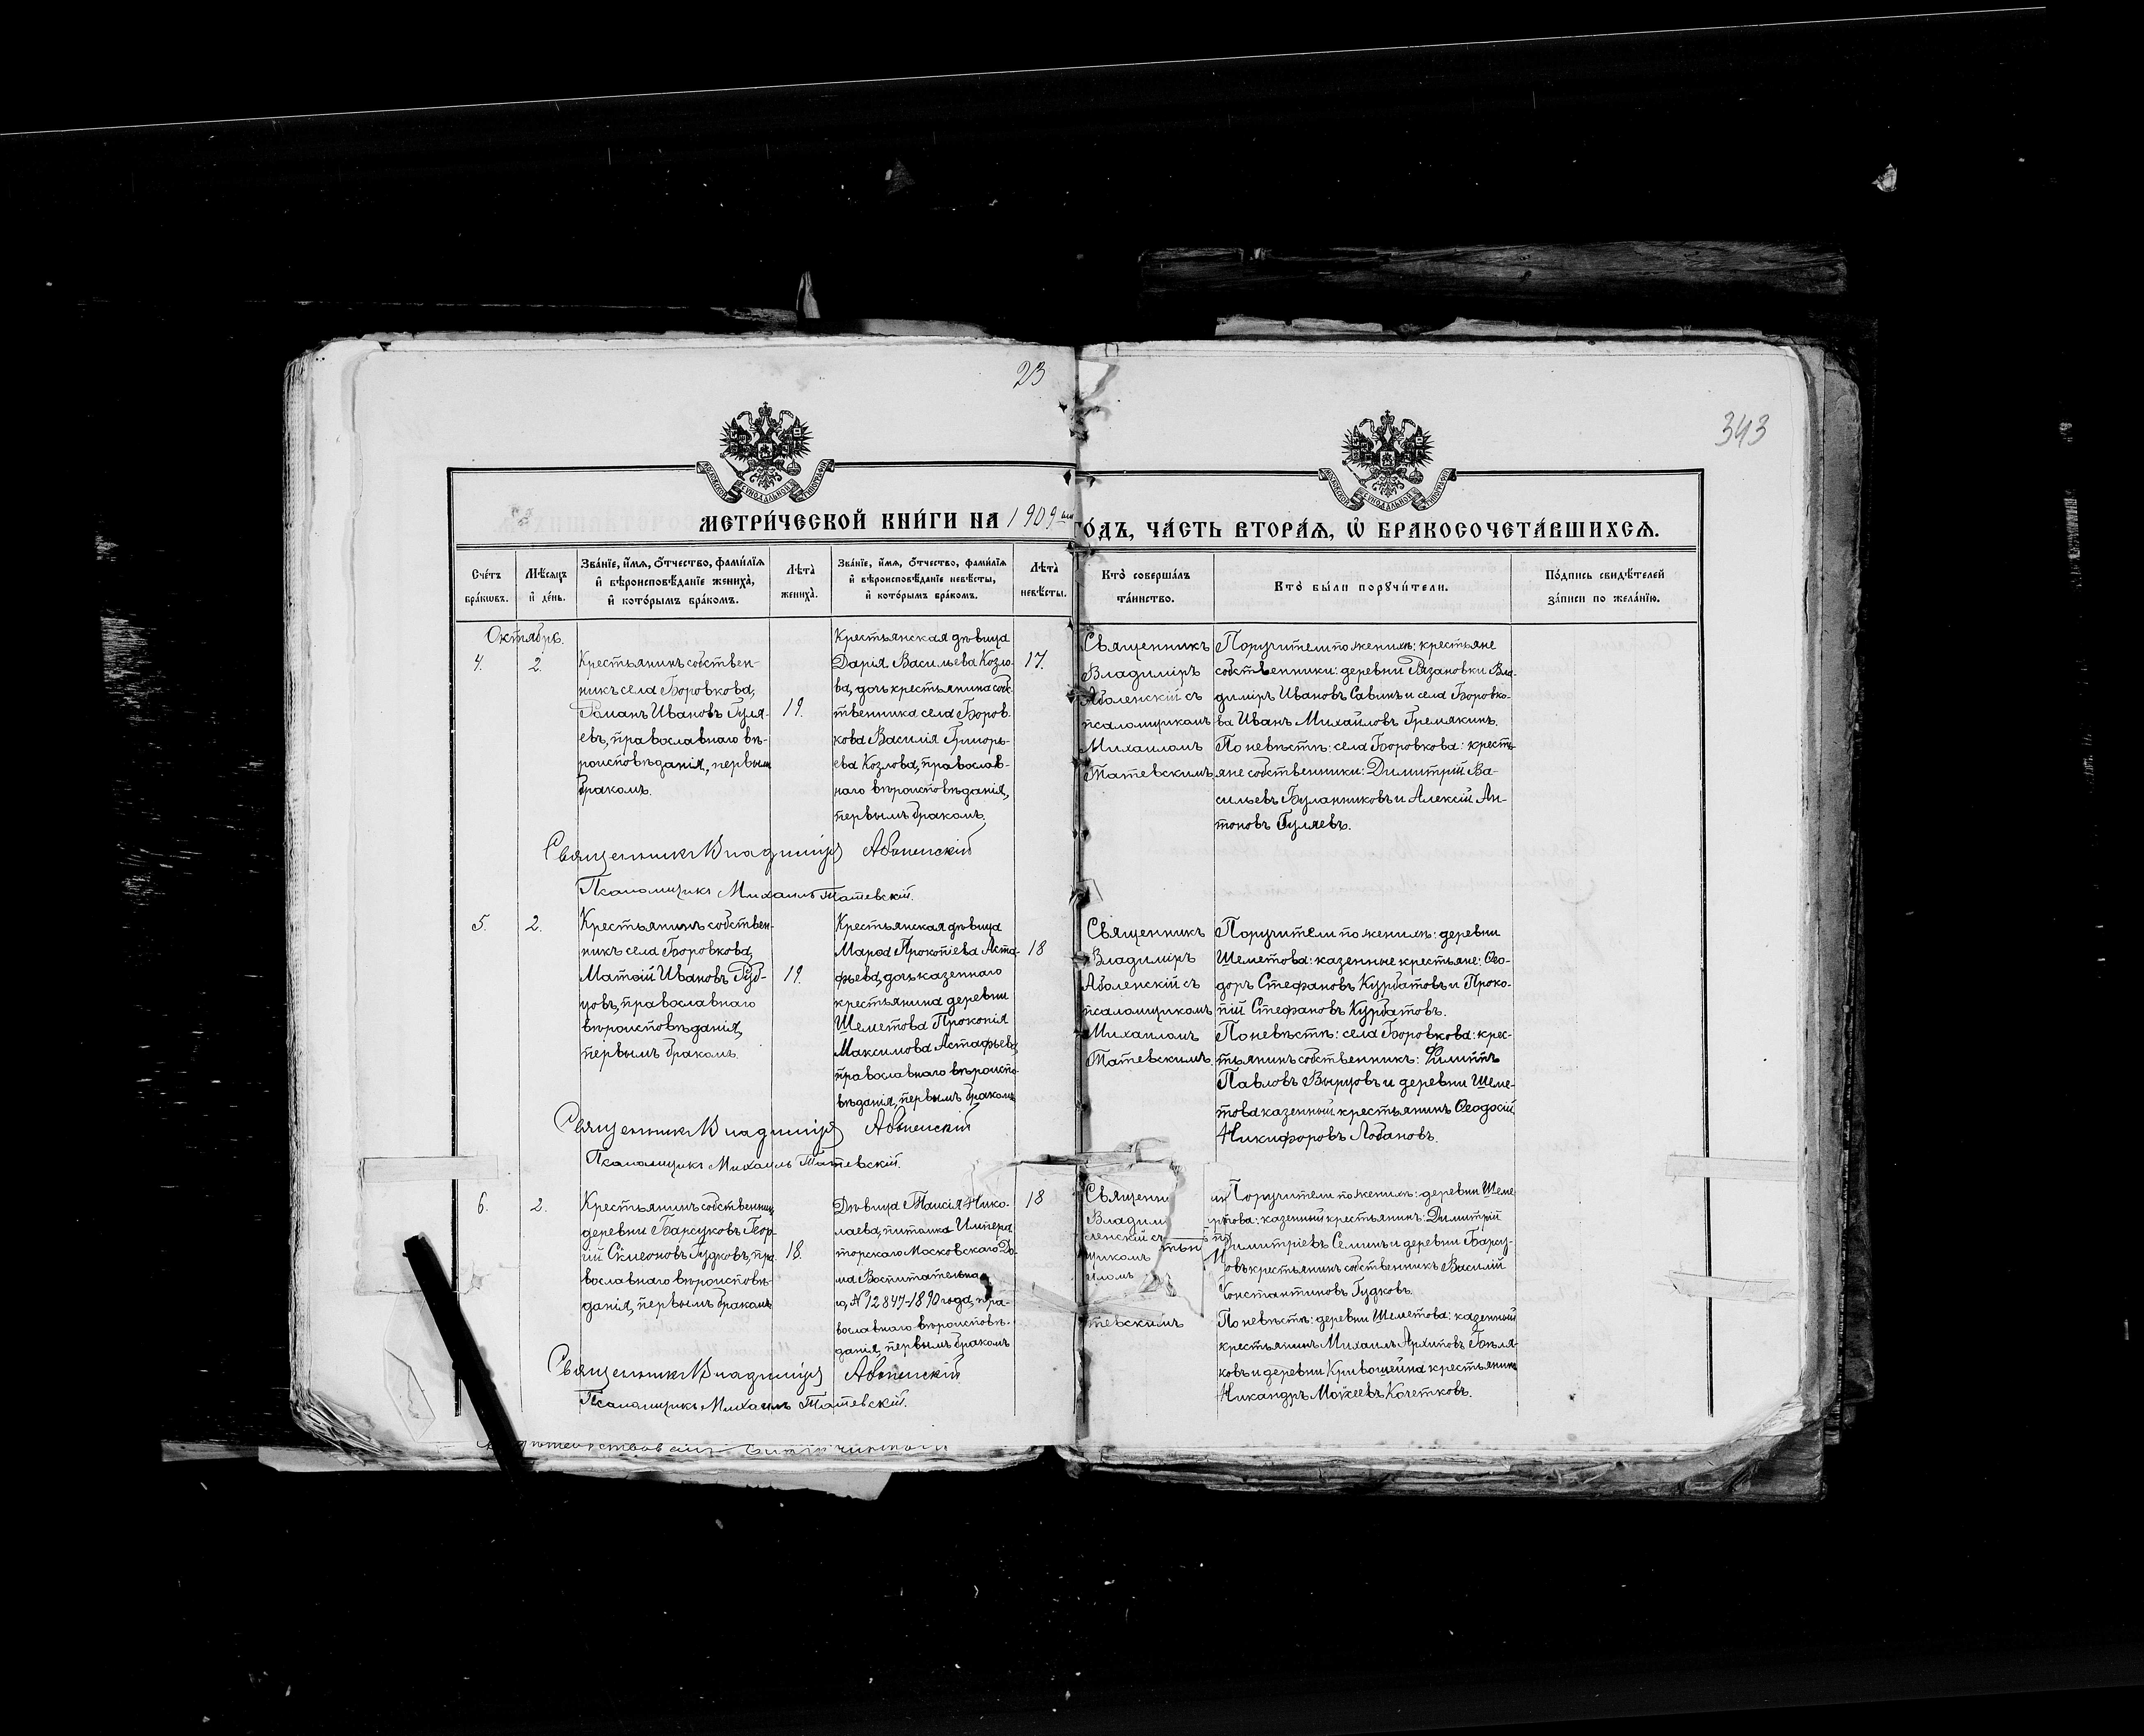 23
343
МОСКОВСКОЙ СѴНОДАЛЬНОЙ ТИПОГРАФІИ
МОСКОВСКОЙ СѴНОДАЛЬНОЙ ТИПОГРАФІИ
МЕТРИ́ЧЕСКОЙ КНИ́ГИ НА 1909 ГО́ДЪ, ЧА́СТЬ ВТОРА́Ѧ, Ѡ҆ БРАКОСОЧЕТА́ВШИХСѦ.
Сче́тъ
бра́кѡвъ.
Мѣ́сѧцъ
и҆ де́нь.
Зва́нїе, и҆́мѧ, ѻ҆́тчество, фами́лїѧ
и҆ вѣроисповѣ́данїе жениха̀,
и҆ кото́рымъ бра́комъ.
Лѣ́та
жениха̀.
Зва́нїе, и҆́мѧ, ѻ҆́тчество, фами́лїѧ
и҆ вѣроисповѣ́данїе невѣ́сты,
и҆ кото́рымъ бра́комъ.
Лѣ́та
невѣ́сты.
Кто̀ соверша́лъ
та́инство.
Кто̀ бы́ли порꙋчи́тели.
По́дпись свидѣ́телей
за́писи по жела́нїю.
Октябрь.
4.
2.
Крестьянинъ собствен-
никъ села Боровкова,
Романъ Ивановъ Гуля-
евъ, православнаго вѣ-
роисповѣданія, первымъ
бракомъ.
19.
Крестьянская дѣвица
Дарія Васильева Козло-
ва, дочь крестьянина соб-
ственника села Боров-
кова Василія Григорь-
ева Козлова, православ-
наго вѣроисповѣданія,
первымъ бракомъ.
17.
Священникъ
Владиміръ
Аболенскій съ
псаломщикомъ
Михаиломъ
Татевскимъ.
Поручители по женихѣ: крестьяне
собственники: деревни Рязановки Вла-
димиръ Ивановъ Савинъ и села Боровко-
ва Иванъ Михайловъ Гремякинъ.
По невѣстѣ: села Боровкова: кресть-
яне собственники: Димитрій Ва-
сильевъ Буланниковъ и Алексій Ан-
тоновъ Гуляевъ.
Священникъ Владиміръ Аболенскій
Псаломщикъ Михаилъ Татевскій.
5.
2.
Крестьянинъ собствен-
никъ села Боровкова,
Матѳій Ивановъ Руб-
цовъ, православнаго
вѣроисповѣданія,
первымъ бракомъ.
19.
Крестьянская дѣвица
Марѳа Прокопіева Аста-
фьева, дочь казеннаго
крестьянина деревни
Шеметова Прокопія
Максимова Астафьева,
православнаго вѣроиспо-
вѣданія, первымъ бракомъ.
18
Священникъ
Владиміръ
Аболенскій съ
псаломщикомъ
Михаиломъ
Татевскимъ.
Поручители по женихѣ: деревни
Шеметова: казенные крестьяне: Ѳео-
доръ Стефановъ Курбатовъ и Проко-
пій Стефановъ Курбатовъ.
По невѣстѣ: села Боровкова: крес-
тьянинъ собственникъ: Филиппъ
Павловъ Вырцовъ и деревни Шеме-
това казенный крестьянинъ Ѳеодосій
Никифоровъ Лобановъ.
Священникъ Владиміръ Аболенскій
Псаломщикъ Михаилъ Татевскій.
6.
2.
Крестьянинъ собственникъ
деревни Барсуковъ Геор-
гій Сѵмеоновъ Гудковъ, пра-
вославнаго вѣроисповѣ-
данія, первымъ бракомъ
18.
Дѣвица Таисія Нико-
лаева, питомка Импера-
торскаго Московскаго До-
ма Воспитательна-
го, № 12847-1890 года, пра-
вославнаго вѣроисповѣ-
данія, первымъ бракомъ
18
Священни
Владим
ленскій съ
щикомъ
иломъ
тевскимъ
Поручители по женихѣ: деревни Шеме-
това: казенный крестьянинъ: Димитрій
Димитріевъ Семинъ и деревни Барсу-
ковъ крестьянинъ собственникъ Василій
Константиновъ Гудковъ.
По невѣстѣ: деревни Шеметова: казенный
крестьянинъ Михаилъ Архиповъ Гоголя-
ковъ и деревни Кривошеина крестьянинъ
Никандръ Моѵсеевъ Кочетковъ.
Священникъ Владиміръ Аболенскій
Псаломщикъ Михаилъ Татевскій.